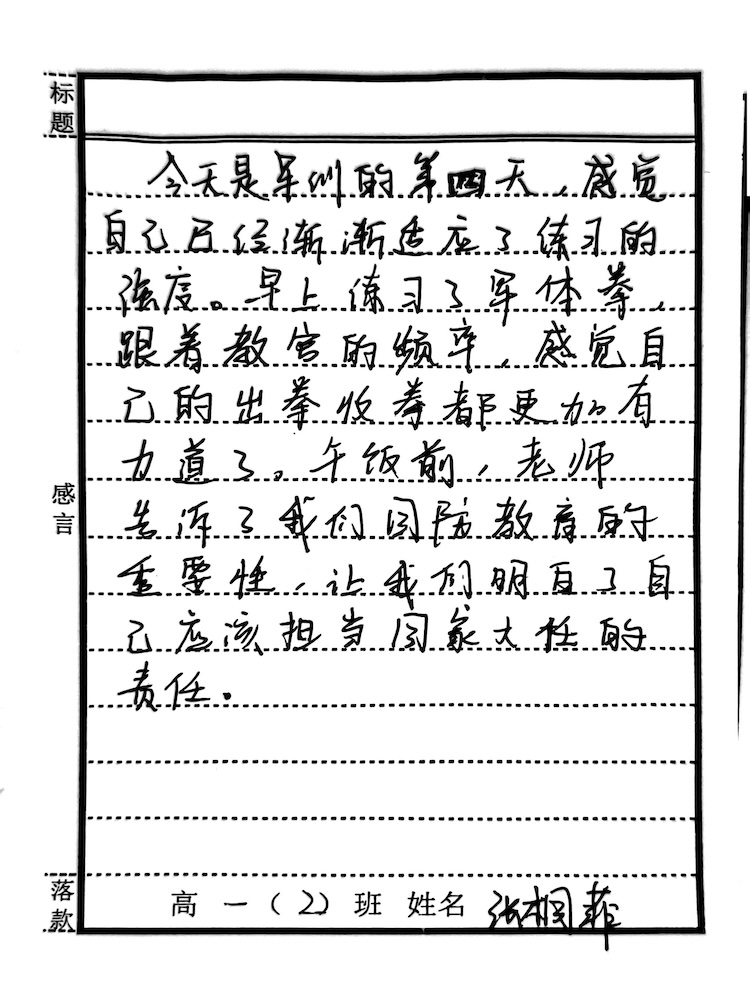 标题
今天是军训的第四天，感觉
自己已经渐渐适应了练习的
强度。早上练习了军体拳，
跟着教官的频率，感觉自
己的出拳收拳都更加有
力道了。午饭前，老师
告诉了我们国防教育的
重要性，让我们明白了自
己应该担当国家大任的
责任。
感言
落款
高一（2）班 姓名 张桐菲